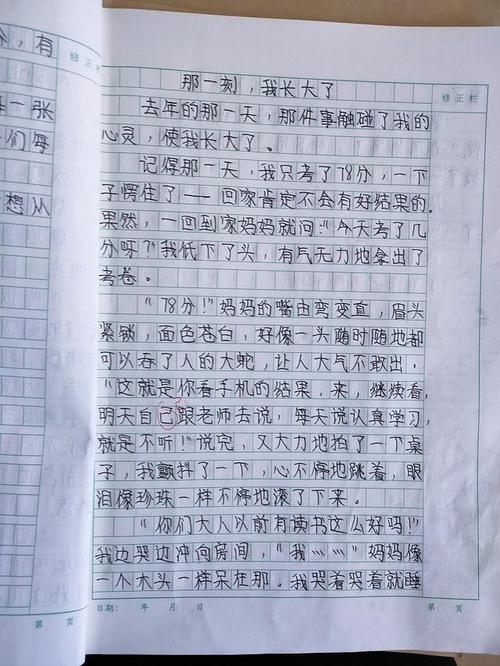 ，有
修正栏
一张
们每
想从
第 页
修正栏
那一刻，我长大了
去年的那一天，那件事触碰了我的
心灵，使我长大了。
记得那一天，我只考了78分，一下
子愣住了——回家肯定不会有好结果的。
果然，一回到家妈妈就问："今天考了几
分呀？"我低下了头，有气无力地拿出了
考卷。
"78分！"妈妈的嘴由弯变直，眉头
紧锁，面色苍白，好像一头随时随地都
可以吞了人的大蛇，让人大气不敢出，
"这就是你看手机的结果，来，继续看，
明天自己跟老师去说，每天说认真学习，
就是不听！"说完，又大力地拍了一下桌
子，我颤抖了一下，心不停地跳着，眼
泪像珍珠一样不停地滚了下来。
"你们大人以前有读书这么好吗！"
我边哭边冲向房间，"我……"妈妈像
一个木头一样呆在那。我哭着哭着就睡
日期： 年 月 日
第 页